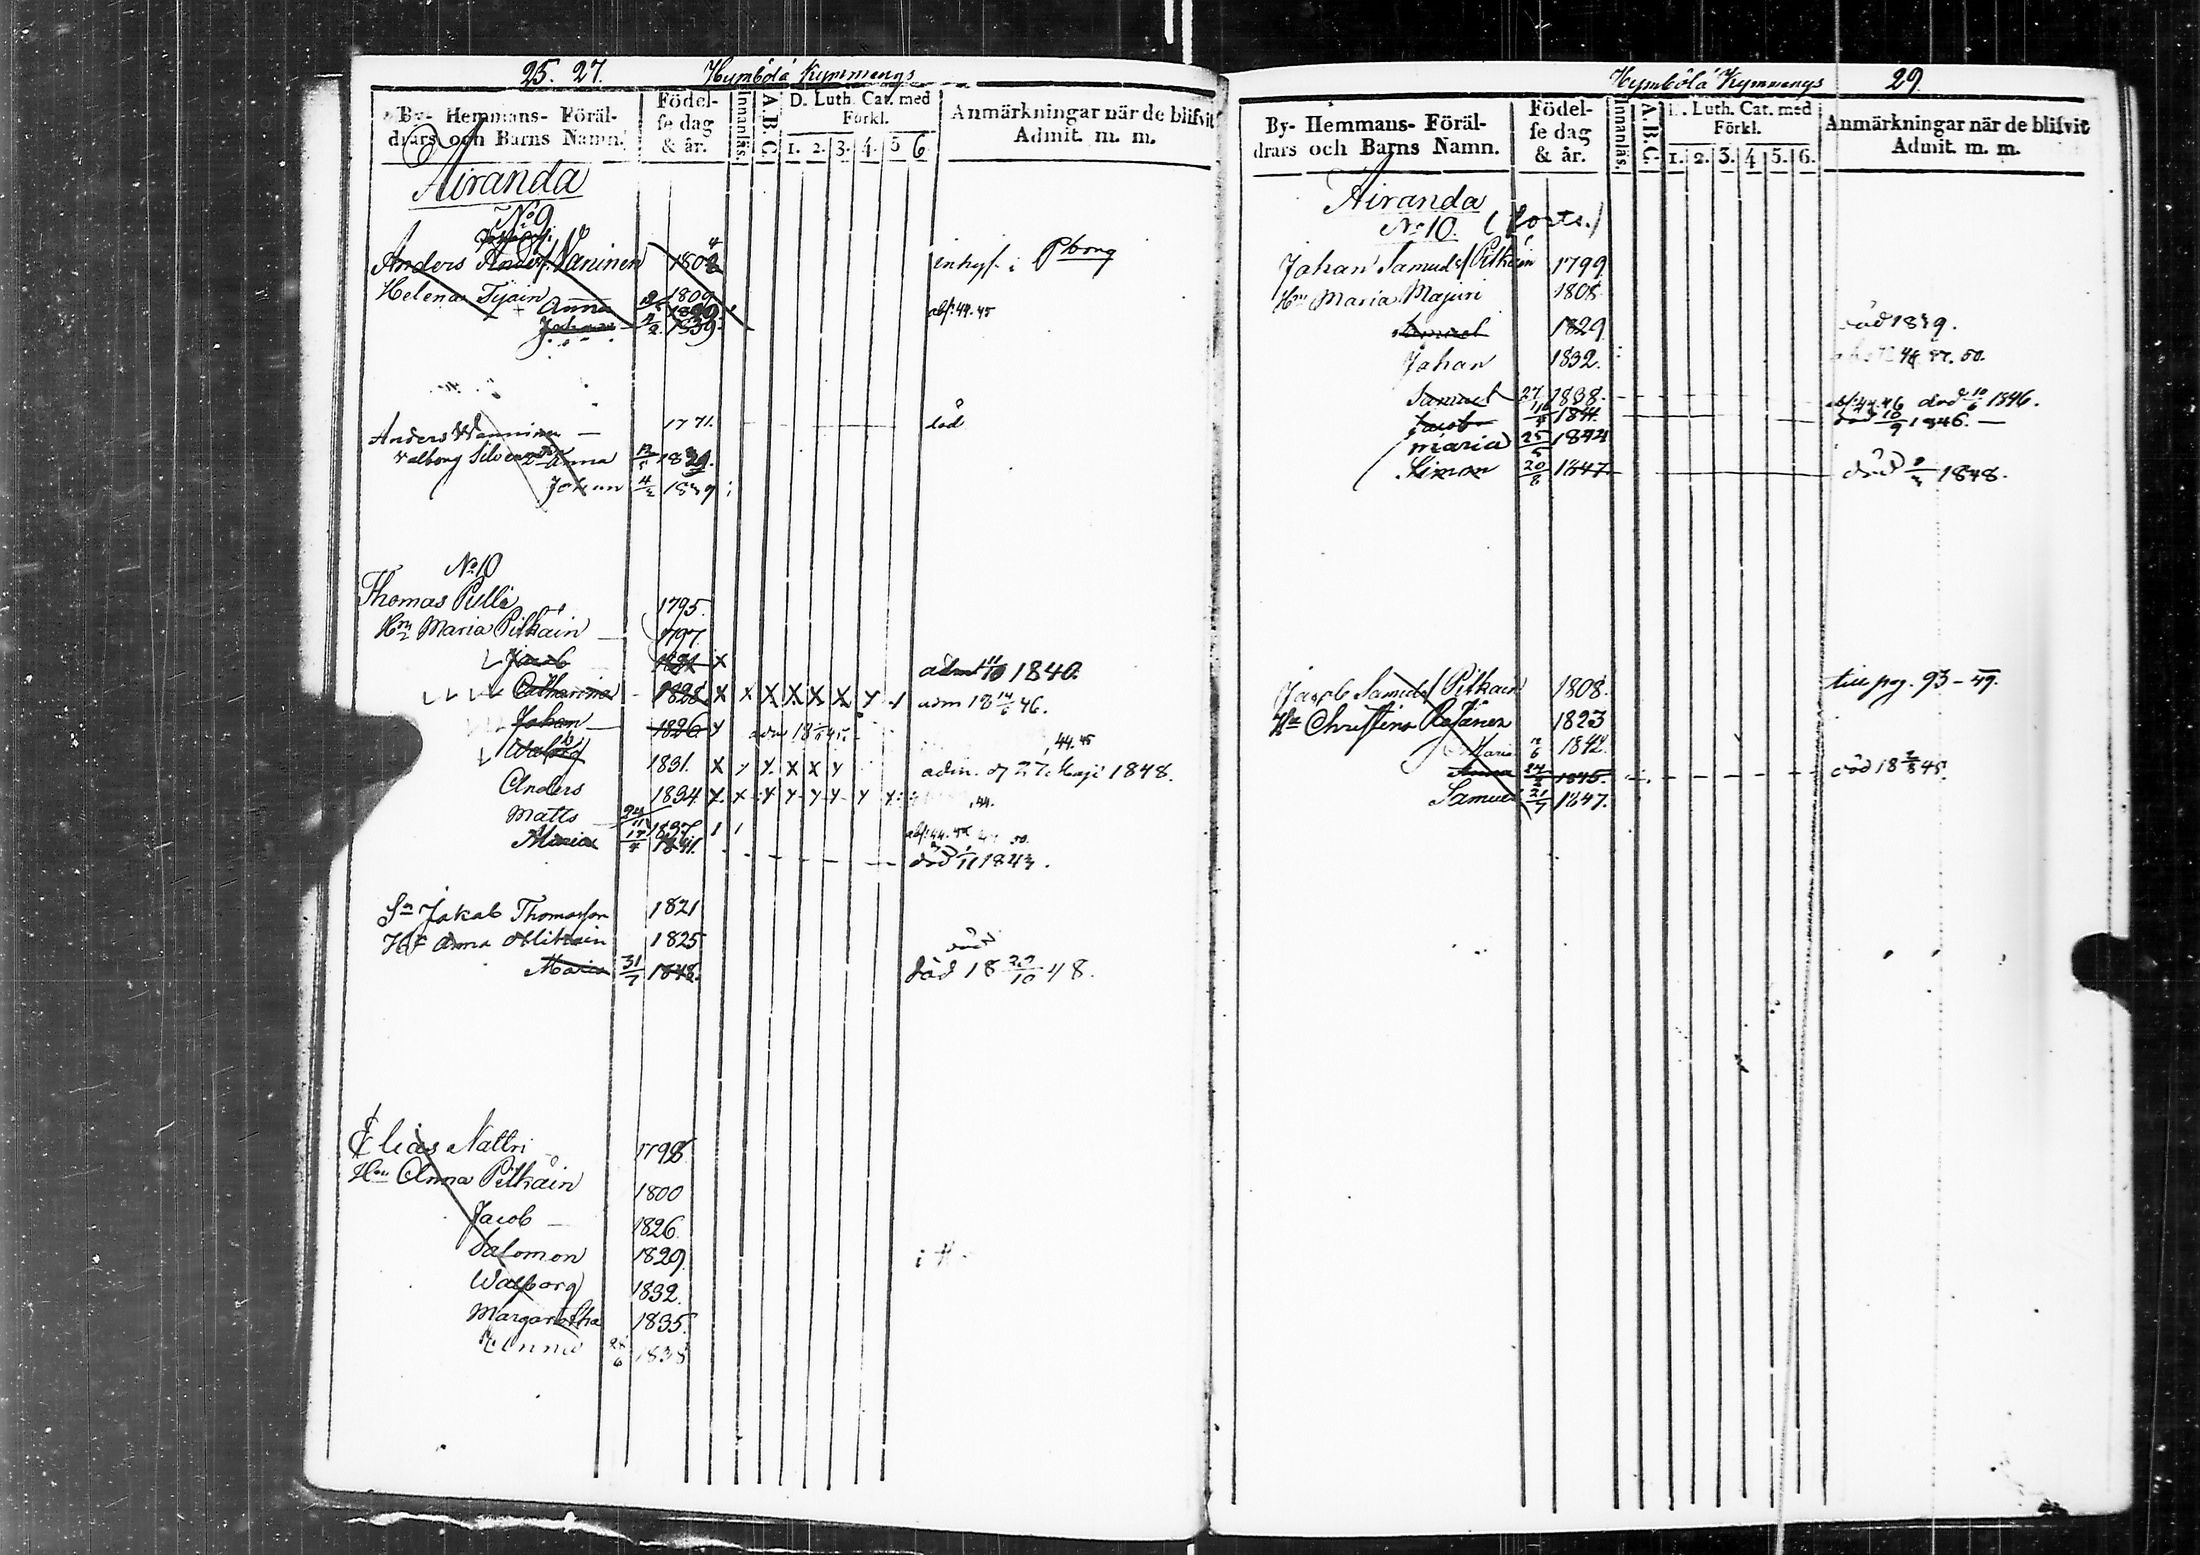 25. 27. Hymbölä Kymmenys
By- Hemmans- Föräl-
drars och Barns Namn.
Födel-
se dag
& år.
Innanläs.
A.B.C.
D. Luth. Cat. med
Förkl.
1. 2. 3. 4. 5 6
Anmärkningar när de blifvit
Admit. m. m.
Airanda
No 9
Anders 1802 inhys. i Pborg
Helena Tijain 1809
Anna abs: 44. 45
Johan 1839
Anders Wanninen 1771. död
Anna
Johan 4/2 1839
No 10
Thomas Pulli 1795.
Hu Maria Pitkäin 1797.
Jacob 1821 X adm 1840.
Catharina 1828 X X X X X X adm 18 46.
Johan 1826
Walborg 1831. X X X 44.45 adm. d 27 Maji 1848.
Anders 1834
Matts 1837
Maria 1841. död 1843.
Sn Jakob Thomasson 1821
Hu Anna 1825
Maria 31/7 1848. död 18 22/10 48.
Elias Nattri 1798
Hu Anna Pitkäin 1800
Jacob 1826
Salomon 1829
Walborg 1832.
Margaretha 1835.
Anna 28/6 1838
Hymbölä Kymmenys 29.
By- Hemmans- Föräl-
drars och Barns Namn.
Födel-
se dag
& år.
Innanläs.
A.B.C.
D. Luth. Cat. med
Förkl.
1. 2. 3. 4 5. 6.
Anmärkningar när de blifvit
Admit. m. m.
Airanda
No 10. (forts.)
Johan Samuelss Pitkäin 1799
Hu Maria Majuri 1808
Samuel 1829 död 1839.
Johan 1832.
Samuel 27/11 1838. död 10/6 1846.
Jacob 1844 död 10/9 1846.
Maria 25/5 1844
Simon 20/8 1847 död 1848.
Jacob Samuelss Pitkäin 1808. till pag. 93 - 49.
Hu Christina 1823
Maria 1842.
Anna 1845. död 18 45.
Samuel 21/7 1847.